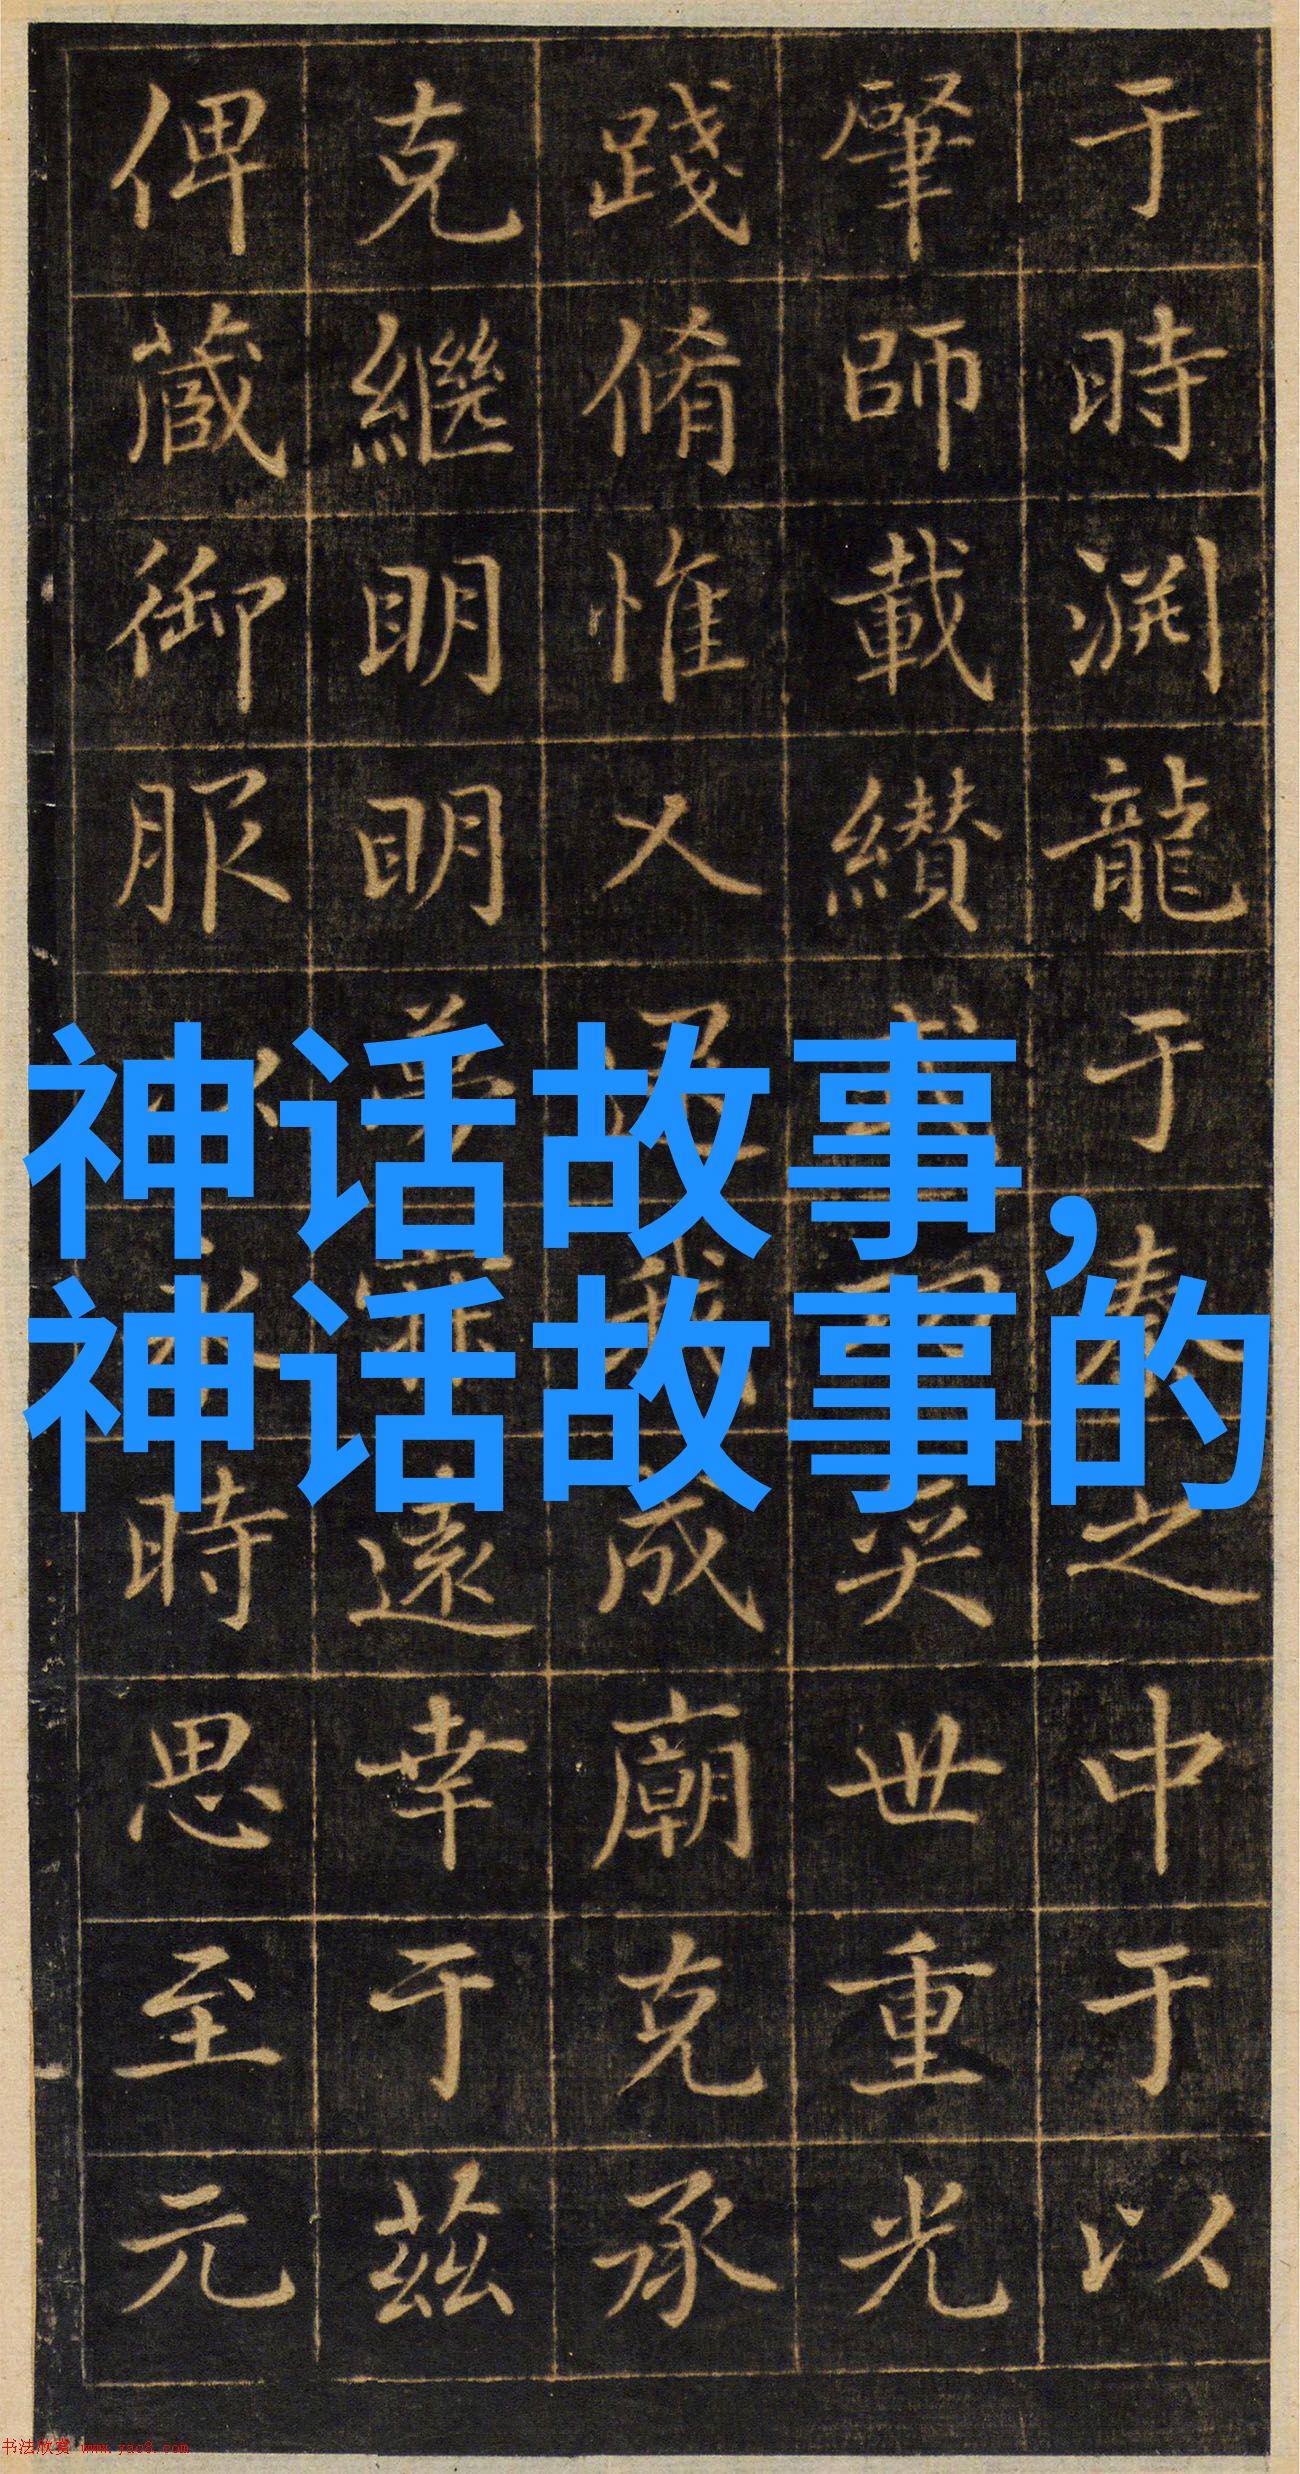 于時渊龍于之中于以
肇師載纘奕世重光
踐脩惟乂我成廟克承
克繼明明遠幸于茲
俾蔵御服永時思至元
神话故事，
神话故事的
书法欣赏 www.yac8.com